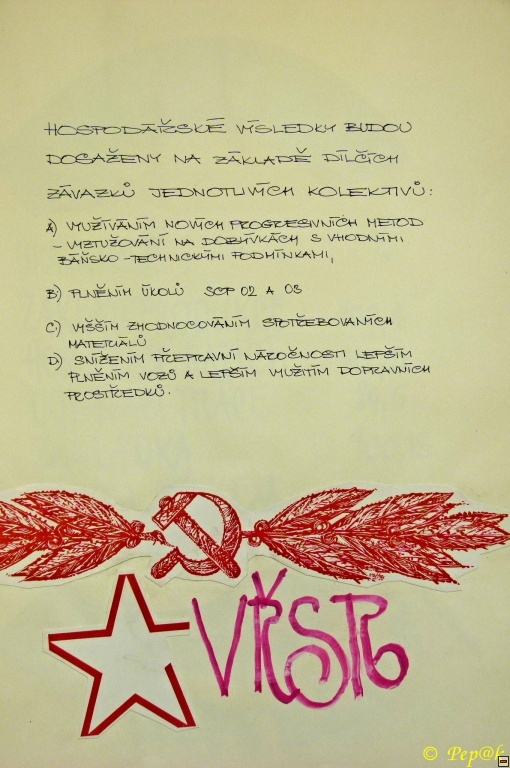 HOSPODÁŘSKÉ VÝSLEDKY BUDOU
DOSAŽENY NA ZÁKLADĚ DÍLČÍCH
ZÁVAZKŮ JEDNOTLIVÝCH KOLEKTIVŮ:
A) VYUŽÍVÁNÍM NOVÝCH PROGRESIVNÍCH METOD
- VYZTUŽOVÁNÍ NA DOBÝVKÁCH S VHODNÝMI
BÁŇSKO-TECHNICKÝMI PODMÍNKAMI,
B) PLNĚNÍM ÚKOLŮ SCP 02 A 03
C) VYŠŠÍM ZHODNOCOVÁNÍM SPOTŘEBOVANÝCH
MATERIÁLŮ
D) SNÍŽENÍM PŘEPRAVNÍ NÁROČNOSTI LEPŠÍM
PLNĚNÍM VOZŮ A LEPŠÍM VYUŽITÍM DOPRAVNÍCH
PROSTŘEDKŮ.
VŘSR
© Pep@k